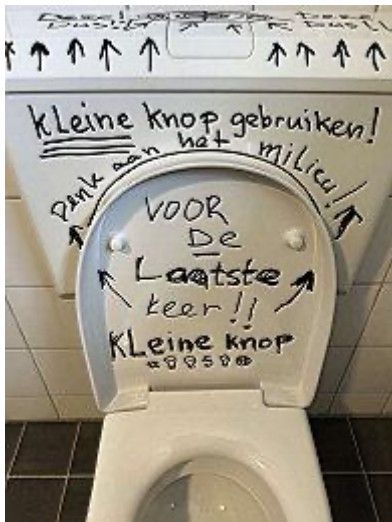 Deze
Dus!!
Deze
Dus!
kLeine knop gebruiken!
Denk aan het milieu!
VOOR
De
Laatste
keer!!
KLeine knop